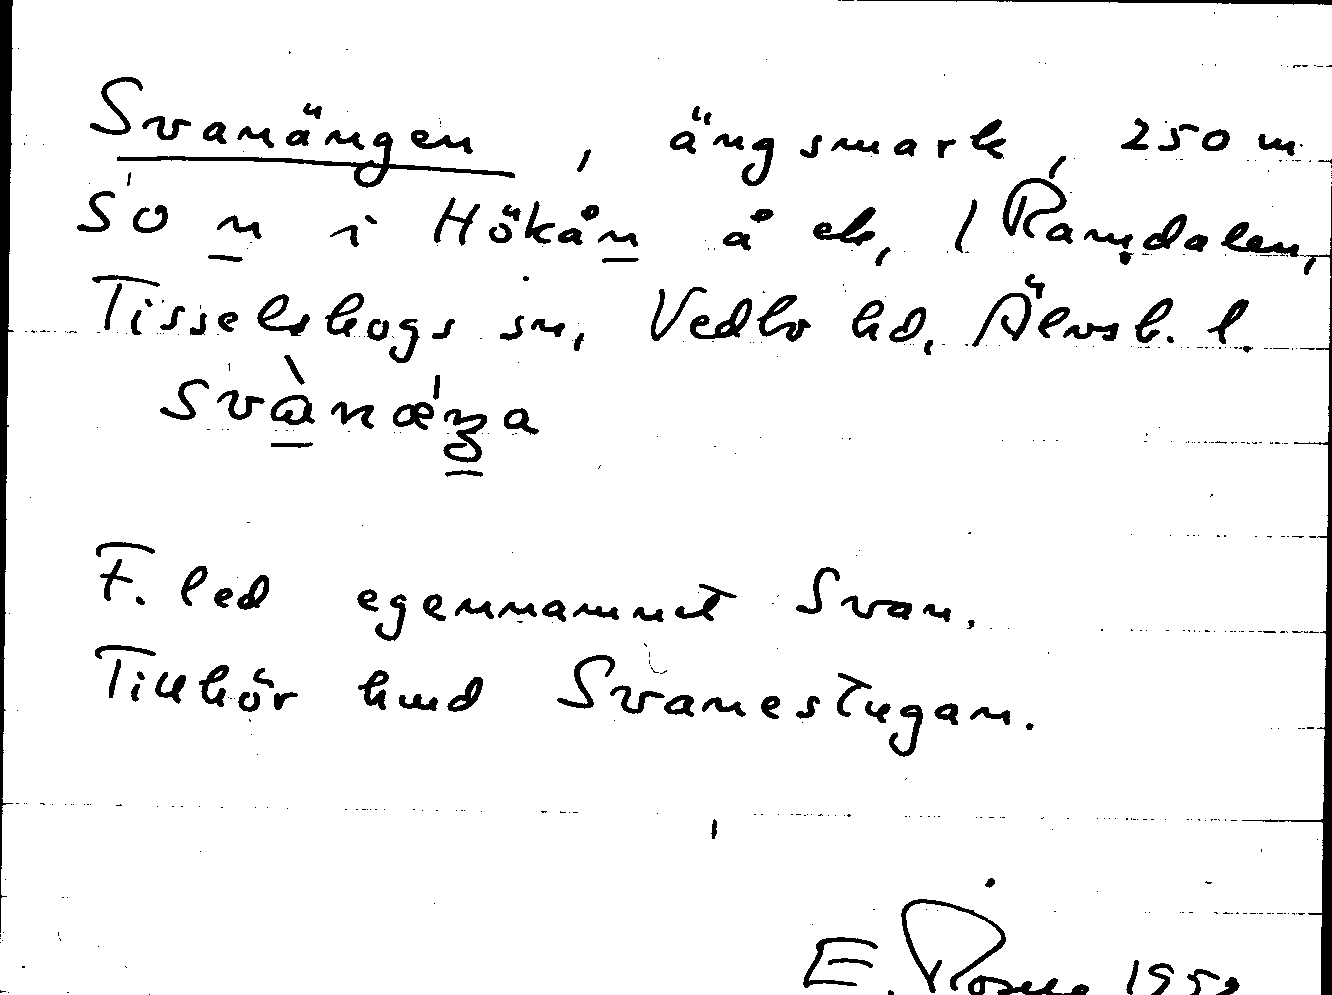 Svanängen, ängsmark, 250 m
SO n i Hökån å ek, 1 Ramdalen,
Tisselskogs sn, Vedbo hd, Älvsb. l.
svànǽŋa
F. led egennamnet Svan.
Tillhör hmd Svanestugan.
E. 195